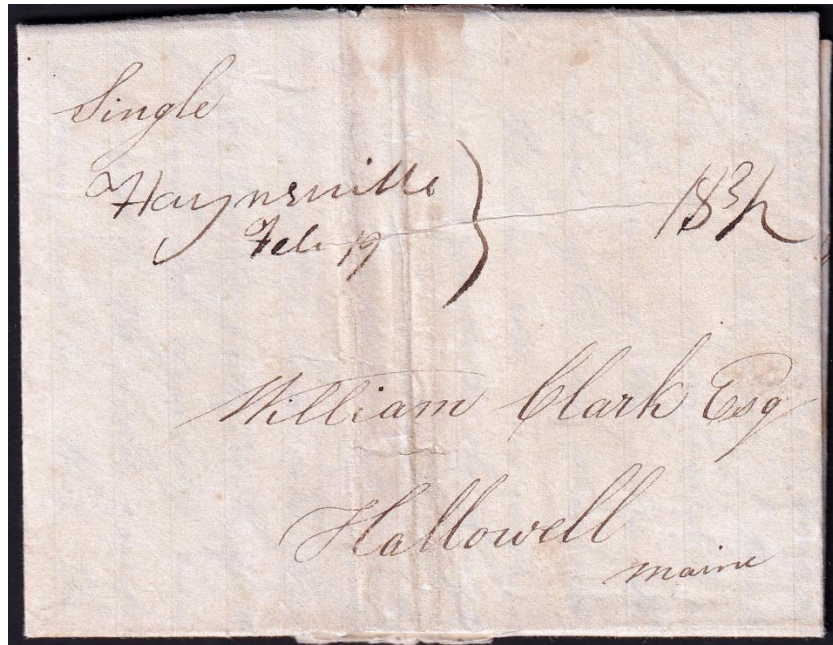 Single
Haynsville
Feb 19
18 3/4
William Clark Esq
Hallowell
maine